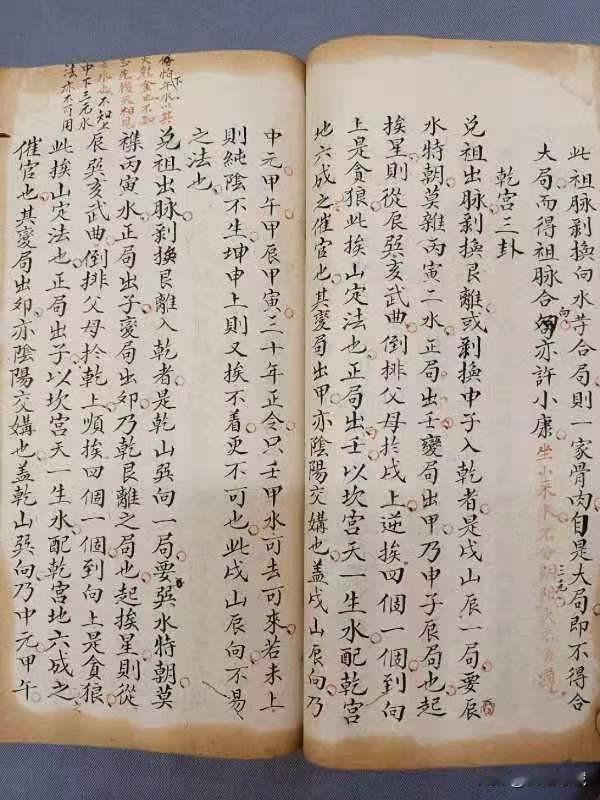 此祖脉剥換向水苐合局則一家骨肉自是大局即不得合
大局而得祖脉合向亦許小康坐山来水不分阴阳
三元
乾宮三卦
兌祖出脉剥換艮離或剥換申子入乾者是戌山辰一局要辰
水特朝莫雜丙寅二水正局出壬變局出甲乃申子辰局也起
挨星則從辰巽亥武曲倒排父母扵戌上逆挨四個一個到向
上是貪狼此挨山定法也正局出壬以坎宮天一生水配乾宮
地六成之催官也其變局出甲亦陰陽交媾也盖戌山辰向乃
中元甲午甲辰甲寅三十年正令只壬甲水可去可來若未上
則純陰不生坤申上則又挨不着更不可也此戌山辰向不易
之法也
兌祖出脉剥換艮離入乾者是乾山巽向一局要巽水特朝莫
襍丙寅水正局出子變局出卯乃乾艮離之局也起挨星則從
辰巽亥武曲倒排父母扵乾上順挨四個一個到向上是貪狼
此挨山定法也正局出子以坎宮天一生水配乾宮地六成之
催官也其變局出卯亦陰陽交媾也盖乾山巽向乃中元甲午
不知上
中下三元水
法亦不可用